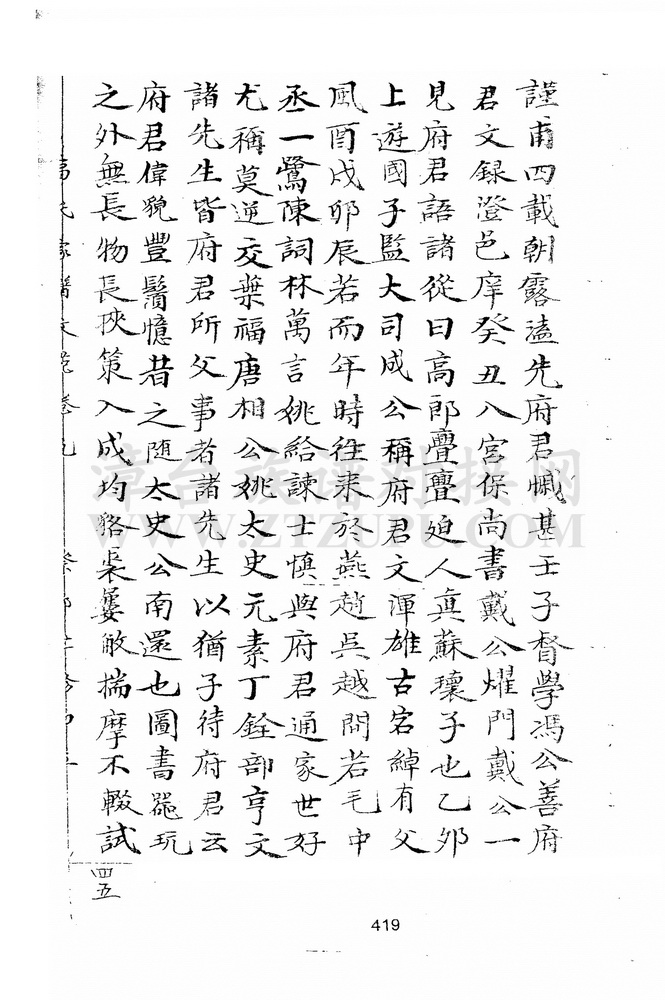 謹甫四載朝露溘先府君慽甚壬子督學馮公善府
君文録澄邑庠癸丑八宮保尚書戴公燿門戴公一
見府君語諸從曰高郎亹亹廹人真蘇瓌子也乙夘
上遊國子監大司成公稱府君文渾雄古宕綽有父
風酉戌夘辰若而年時徃来於燕趙吳越間若毛中
丞一鷺陳詞林萬言姚給諫士慎與府君通家世好
尤稱莫逆交葉福唐相公姚太史元素丁銓部亨文
諸先生皆府君所父事者諸先生以猶子待府君云
府君偉貌豐鬚憶昔之随太史公南還也圖書器玩
之外無長物長挾策入成均貉裘屢敝揣摩不輟試
四五
419
漳台族譜對接網
WWW.ZTZUPU.COM